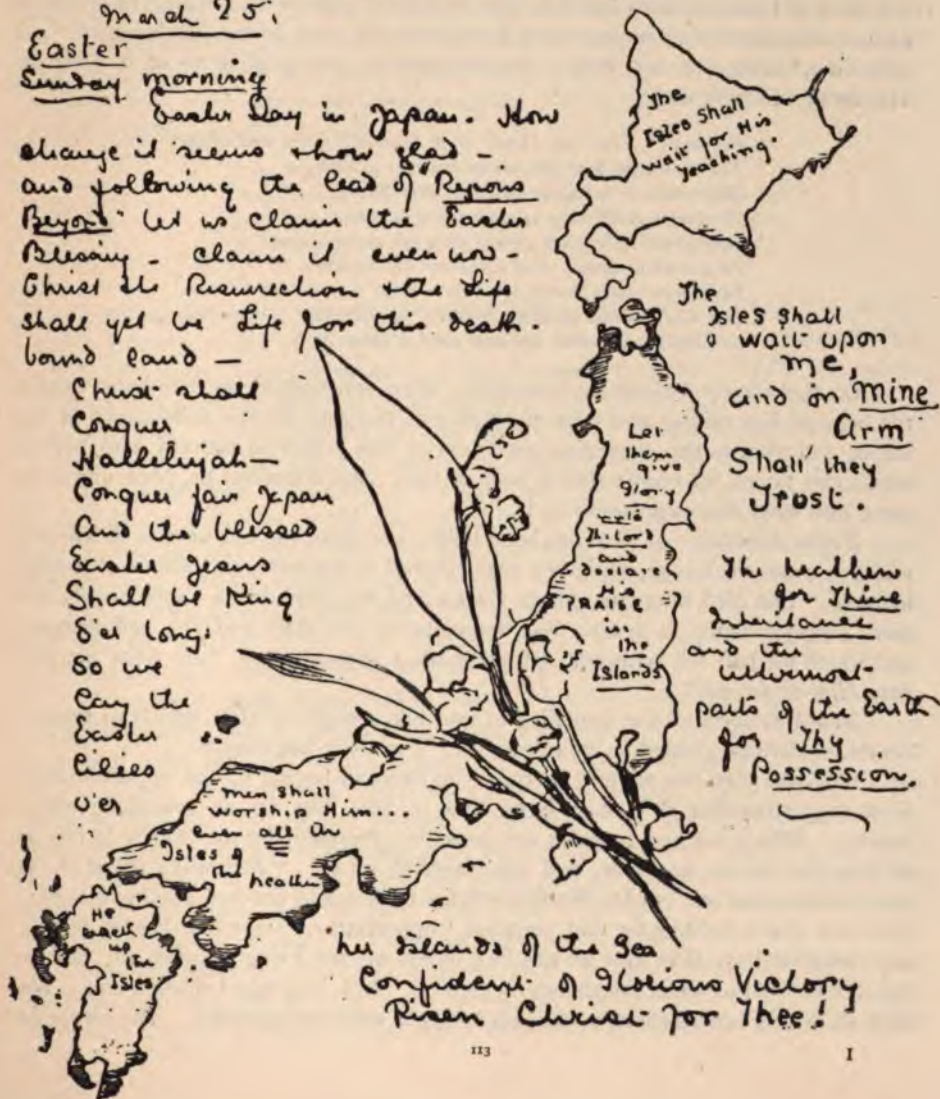 March 25.
Easter
Sunday morning
Easter Day in Japan. How
strange it seems & how glad -
and following the lead of "Regions
Beyond" let us claim the Easter
Blessing - claim it even now -
Christ the Resurrection & the Life
shall yet be Life for this death-
bound land —
Christ shall
Conquer
Hallelujah —
Conquer fair Japan
And the blessed
Easter Jesus
Shall be King
O'er long:
So we
Lay the
Easter
Lilies
O'er
her Islands of the Sea
Confident of Glorious Victory
Risen Christ for Thee!
The
Isles shall
wait for His
Teaching.
The
Isles shall
wait upon
me,
and on Mine
Arm
Shall they
Trust.
Let
them give
glory
unto
The Lord
and
declare
His
PRAISE
in
the
Islands
The heathen
for Thine
Inheritance
and the
uttermost
parts of the Earth
for Thy
Possession.
Men shall
worship Him...
even all the
Isles of
the heathen
He
taketh
up
the
Isles
113
I